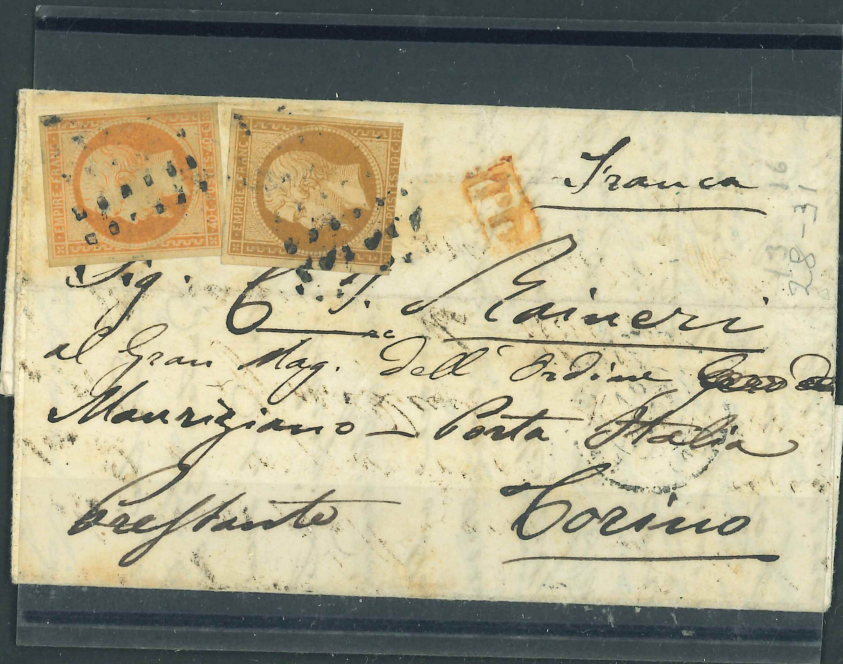 EMPIRE FRANC
40 C 40 C
EMPIRE FRANC
10 C
P.D.
Franca
13 - 16
28 - 31
Sig.
C. Raineri
al Gran Mag. dell' Ordine
Mauriziano — Porta Italia
Torino